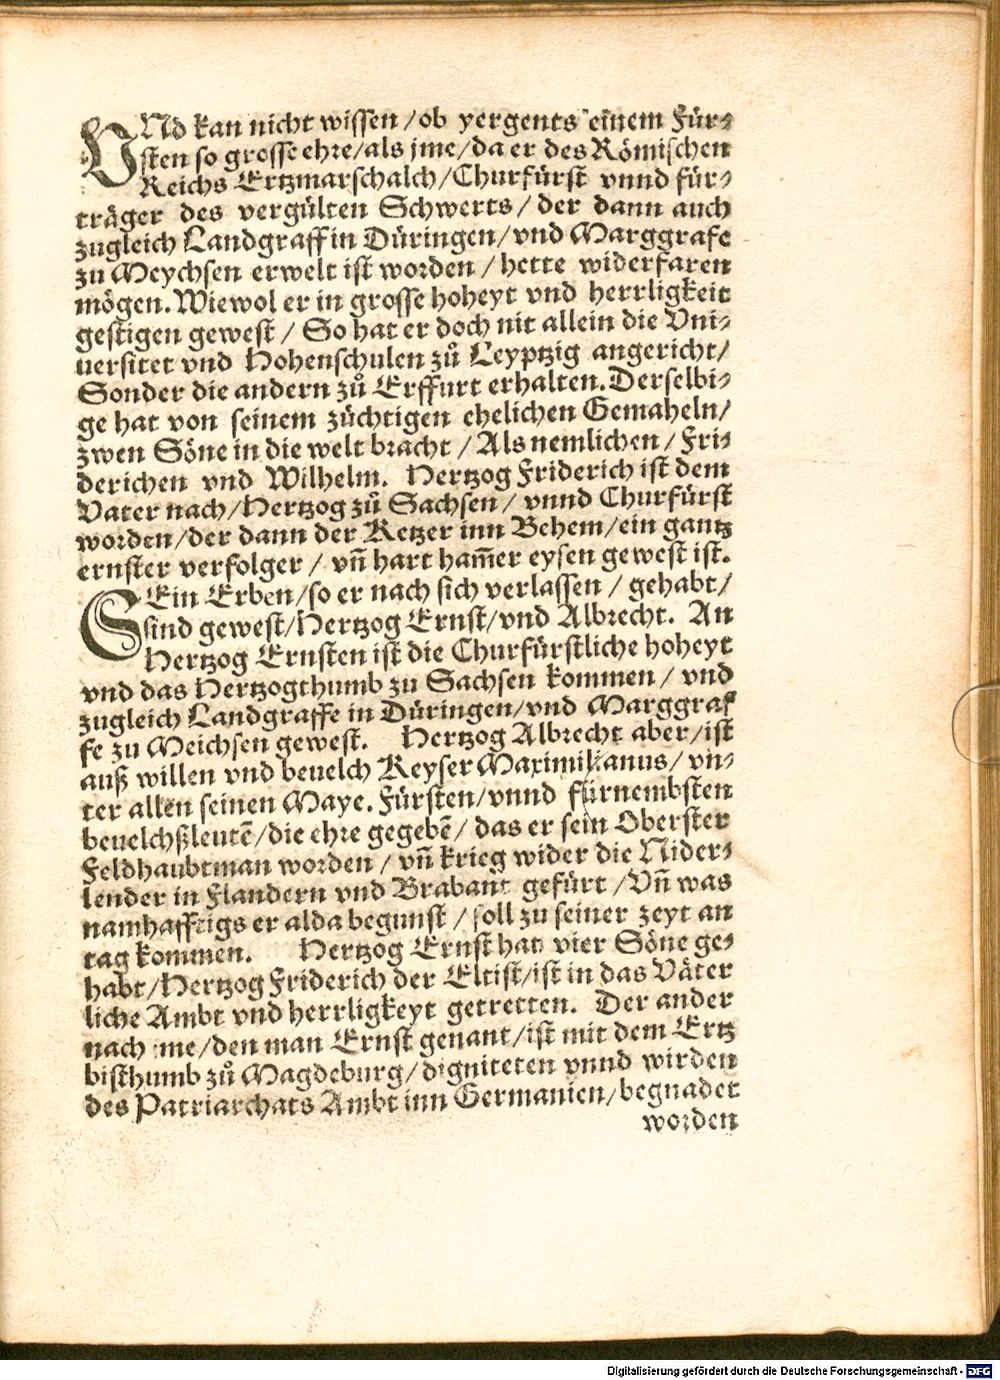 VNd kan nicht wissen / ob yergents einem Für⸗
sten so grosse ehre / als jme / da er des Römischen
Reichs Ertzmarschalch / Churfürst vnnd für⸗
träger des vergülten Schwerts / der dann auch
zugleich Landgraff in Düringen / vnd Marggrafe
zu Meychsen erwelt ist worden / hette widerfaren
mögen. Wiewol er in grosse hoheyt vnd herrligkeit
gestigen gewest / So hat er doch nit allein die Vni⸗
uersitet vnd Hohenschulen zů Leyptzig angericht /
Sonder die andern zů Erffurt erhalten. Derselbi⸗
ge hat von seinem züchtigen ehelichen Gemaheln /
zwen Söne in die welt bracht / Als nemlichen / Fri⸗
derichen vnd Wilhelm. Hertzog Friderich ist dem
Vater nach / Hertzog zů Sachsen / vnnd Churfürst
worden / der dann der Ketzer inn Behem / ein gantz
ernster verfolger / vñ hart ham̃er eysen gewest ist.
SEin Erben / so er nach sich verlassen / gehabt /
sind gewest / Hertzog Ernst / vnd Albrecht. An
Hertzog Ernsten ist die Churfürstliche hoheyt
vnd das Hertzogthumb zu Sachsen kommen / vnd
zugleich Landgraffe in Düringen / vnd Marggraf
fe zu Meichsen gewest. Hertzog Albrecht aber / ist
auß willen vnd beuelch Keyser Maximilianus / vn⸗
ter allen seinen Maye. Fürsten / vnnd fürnembsten
beuelchßleutẽ / die ehre gegebẽ / das er sein Oberster
Feldhaubtman worden / vñ krieg wider die Nider⸗
lender in Flandern vnd Brabant gefürt / Vñ was
namhafftigs er alda begunst / soll zu seiner zeyt an
tag kommen. Hertzog Ernst hat vier Söne ge⸗
habt / Hertzog Friderich der Eltist / ist in das Väter
liche Ambt vnd herrligkeyt getretten. Der ander
nach jme / den man Ernst genant / ist mit dem Ertz
bisthumb zů Magdeburg / digniteten vnnd wirden
des Patriarchats Ambt inn Germanien / begnadet
worden
Digitalisierung gefördert durch die Deutsche Forschungsgemeinschaft - DFG